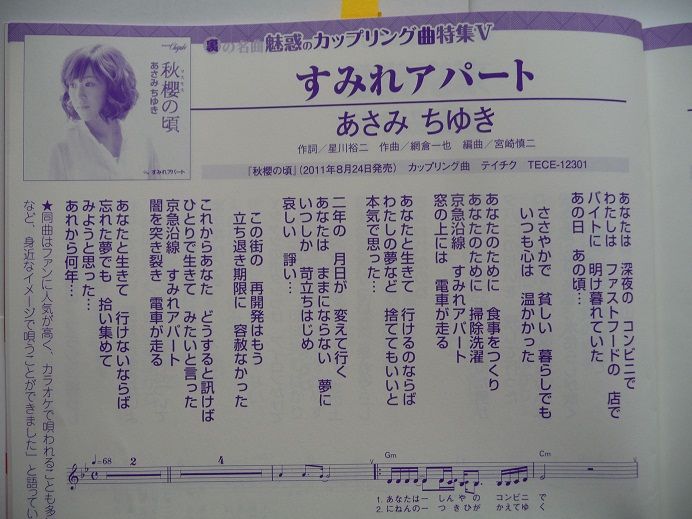 裏の名曲 魅惑のカップリング曲特集V
すみれアパート
あさみ ちゆき
作詞/星川裕二 作曲/網倉一也 編曲/宮崎慎二
「秋櫻の頃」(2011年8月24日発売) カップリング曲 テイチク TECE-12301
秋櫻の頃
コスモス
あさみちゆき
c/w すみれアパート
あなたは 深夜の コンビニで
わたしは ファストフードの 店で
バイトに 明け暮れていた
あの日 あの頃…
ささやかで 貧しい 暮らしでも
いつも心は 温かかった
あなたのために 食事をつくり
あなたのために 掃除洗濯
京急沿線 すみれアパート
窓の上には 電車が走る
あなたと生きて 行けるのならば
わたしの夢など 捨ててもいいと
本気で思った…
二年の 月日が 変えて行く
あなたは ままにならない 夢に
いつしか 苛立ちはじめ
哀しい 諍い…
この街の 再開発はもう
立ち退き期限に 容赦なかった
これからあなた どうすると訊けば
ひとりで生きて みたいと言った
京急沿線 すみれアパート
闇を突き裂き 電車が走る
あなたと生きて 行けないならば
忘れた夢でも 拾い集めて
みようと思った…
あれから何年…
★同曲はファンに人気が高く、カラオケで唄われることも多
など、身近なイメージで唄うことができました」と語ってい
♩=68
2
4
V
Gm
Cm
V
1. あなたはー しんやの コンビニ で
2. にねんのー つきひが かえてゆ く